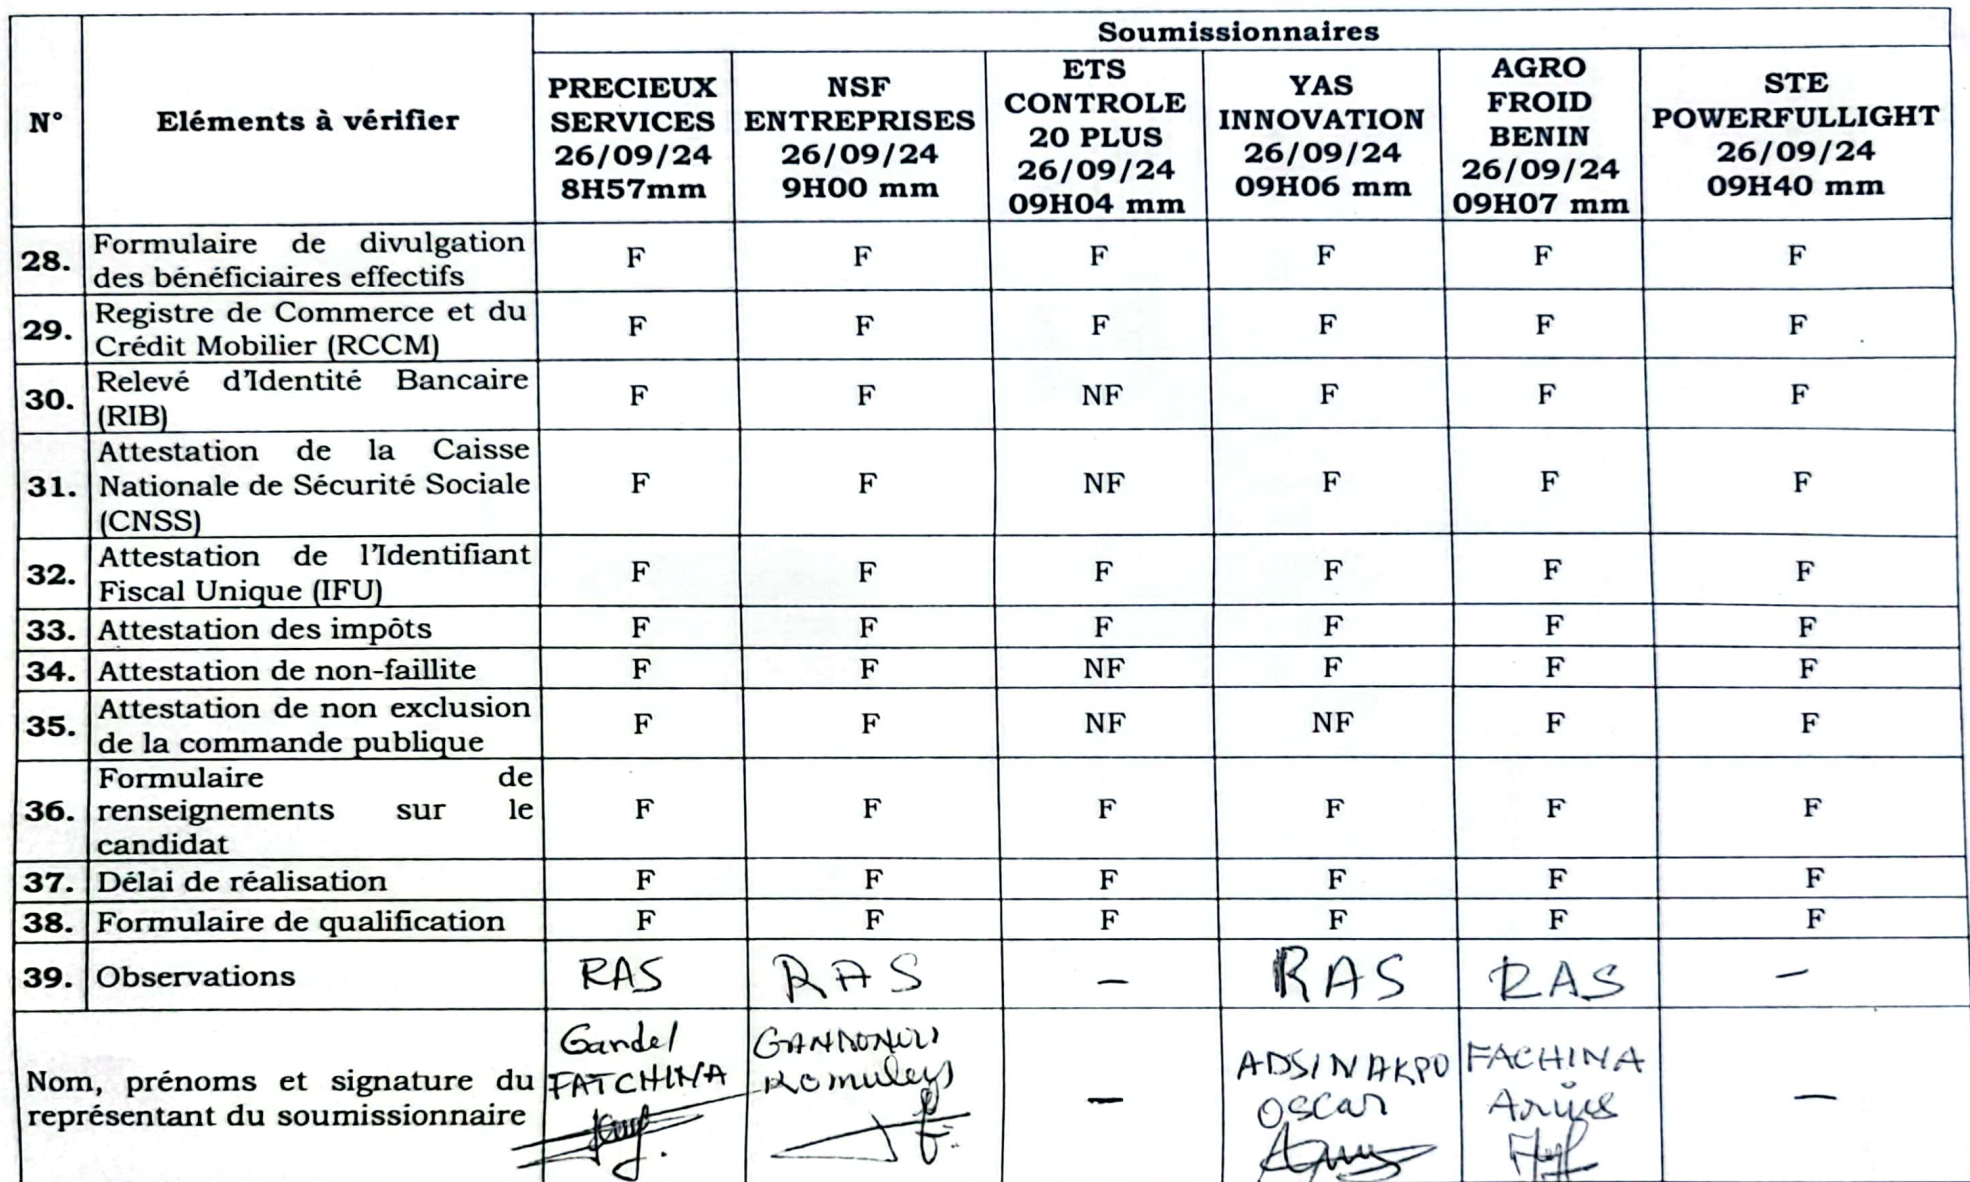 Soumissionnaires
N° Eléments à vérifier
PRECIEUX
SERVICES
26/09/24
8H57mm
NSF
ENTREPRISES
26/09/24
9H00 mm
ETS
CONTROLE
20 PLUS
26/09/24
09H04 mm
YAS
INNOVATION
26/09/24
09H06 mm
AGRO
FROID
BENIN
26/09/24
09H07 mm
STE
POWERFULLIGHT
26/09/24
09H40 mm
28. Formulaire de divulgation
des bénéficiaires effectifs
F F F F F F
29. Registre de Commerce et du
Crédit Mobilier (RCCM)
F F F F F F
30. Relevé d'Identité Bancaire
(RIB)
F F NF F F F
31. Attestation de la Caisse
Nationale de Sécurité Sociale
(CNSS)
F F NF F F F
32. Attestation de l'Identifiant
Fiscal Unique (IFU)
F F F F F F
33. Attestation des impôts F F F F F F
34. Attestation de non-faillite F F NF F F F
35. Attestation de non exclusion
de la commande publique
F F NF NF F F
36. Formulaire de
renseignements sur le
candidat
F F F F F F
37. Délai de réalisation F F F F F F
38. Formulaire de qualification F F F F F F
39. Observations RAS RAS – RAS RAS –
Nom, prénoms et signature du
représentant du soumissionnaire
Gandel
FATCHINA
–
ADSINAKPO
Oscar
FACHINA
–